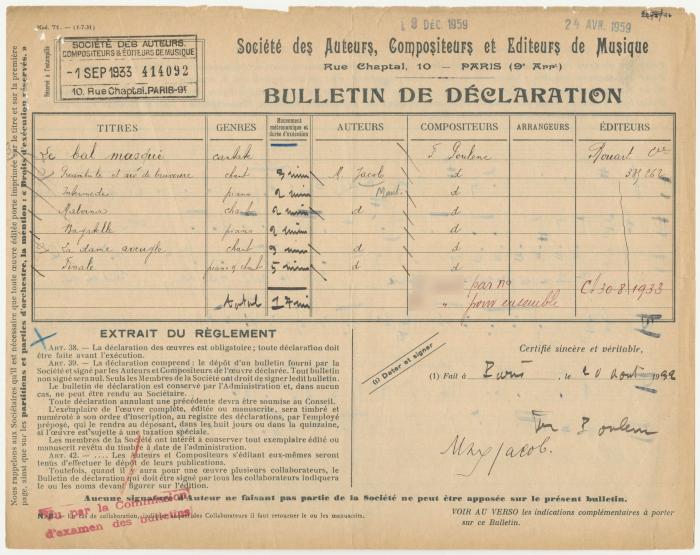 Mod. 71. — (4-7-31)
9 DÉC. 1959
24 AVR. 1959
Réservé à l'estampille
SOCIÉTÉ DES AUTEURS,
COMPOSITEURS & ÉDITEURS DE MUSIQUE
-1 SEP 1933 414092
10, Rue Chaptal, PARIS-9e
Société des Auteurs, Compositeurs et Editeurs de Musique
Rue Chaptal, 10 — PARIS (9e Arrt)
BULLETIN DE DÉCLARATION
TITRES GENRES Mouvement métronomique et durée d'exécution AUTEURS COMPOSITEURS ARRANGEURS ÉDITEURS
Le bal masqué cantate F. Poulenc Rouart
Préambule et air de bravoure chant 3 min M. Jacob d
Intermède piano 2 min d
Malvina chant 2 min d d
Bagatelle piano 2 min d
La dame aveugle chant 3 min d d
Finale piano et chant 5 min d d
par no
Total 17 min " pour ensemble C. 30-8-1933
Nous rappelons aux Sociétaires qu'il est nécessaire que toute œuvre éditée porte imprimée sur le titre et sur la première
page, ainsi que sur les partitions et parties d'orchestre, la mention : « Droits d'exécution réservés. »
EXTRAIT DU RÈGLEMENT
ART. 38. — La déclaration des œuvres est obligatoire ; toute déclaration doit
être faite avant l'exécution.
ART. 39. — La déclaration comprend : le dépôt d'un bulletin fourni par la
Société et signé par les Auteurs et Compositeurs de l'œuvre déclarée. Tout bulletin
non signé sera nul. Seuls les Membres de la Société ont droit de signer ledit bulletin.
Le bulletin de déclaration est conservé par l'Administration et, dans aucun
cas, ne peut être rendu au Sociétaire.
Toute déclaration annulant une précédente devra être soumise au Conseil.
L'exemplaire de l'œuvre complète, éditée ou manuscrite, sera timbré et
numéroté à son ordre d'inscription, au registre des déclarations, par l'employé
préposé, qui le rendra au déposant, dans les huit jours ou dans la quinzaine,
si l'œuvre est sujette à une taxation spéciale.
Les membres de la Société ont intérêt à conserver tout exemplaire édité ou
manuscrit revêtu du timbre à date de l'administration.
ART. 42. — .... Les Auteurs et Compositeurs s'éditant eux-mêmes seront
tenus d'effectuer le dépôt de leurs publications.
Toutefois, quand il y aura pour une œuvre plusieurs collaborateurs, le
Bulletin de déclaration qui doit être signé par tous les collaborateurs indiquera
le ou les noms devant figurer sur l'édition.
(1) Dater et signer
Certifié sincère et véritable,
(1) Fait à Paris, le 20 août 1932
Poulenc
Max Jacob.
Aucune signature d'Auteur ne faisant pas partie de la Société ne peut être apposée sur le présent bulletin.
Vu par la Commission
d'examen des bulletins
VOIR AU VERSO les indications complémentaires à porter
sur ce Bulletin.